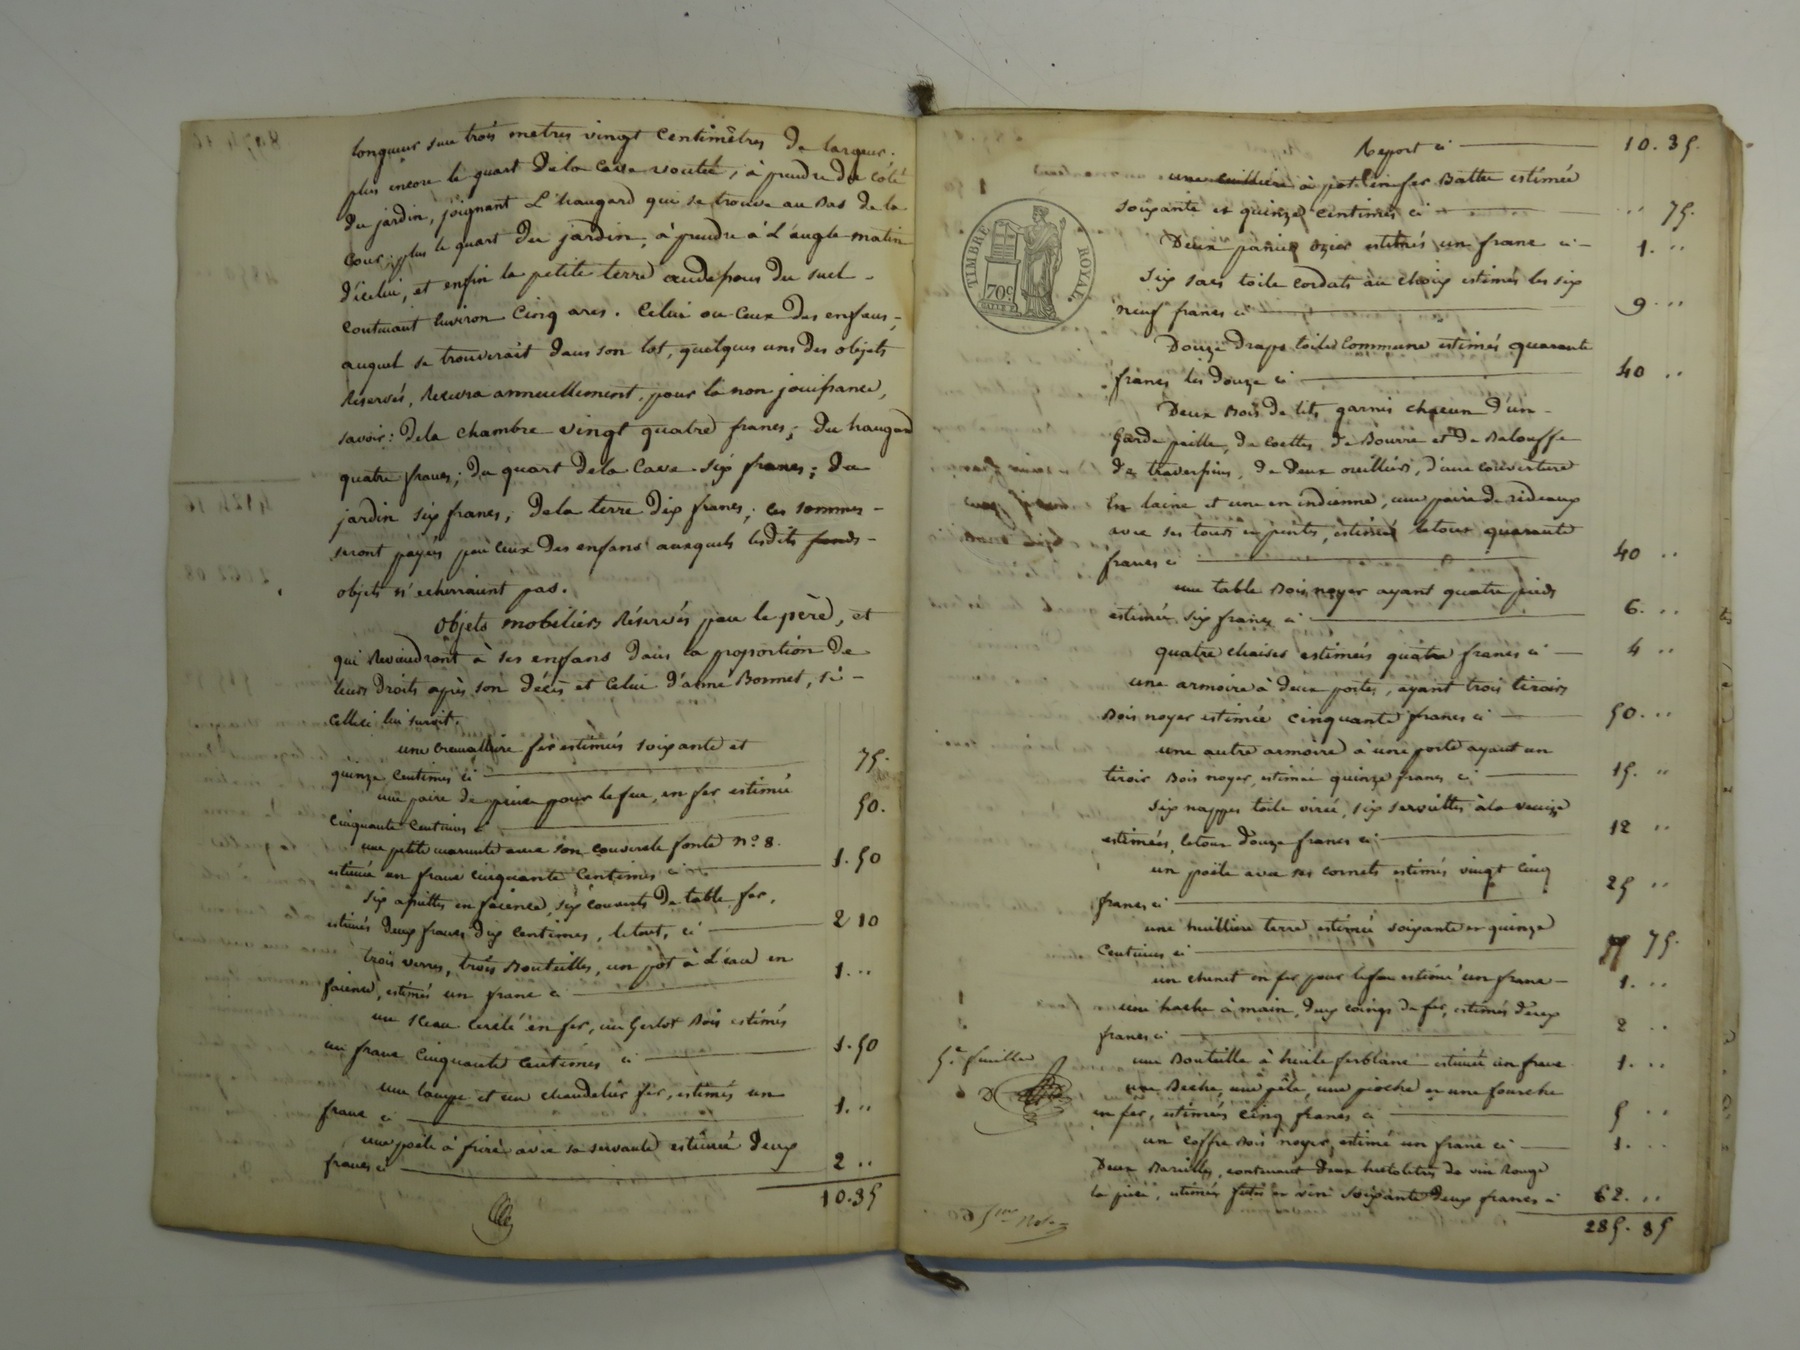 longueur sur trois metres vingt centimètres de largeur.
plus encore le quart de la cave voutée, à prendre du côté
du jardin, joignant L'haugard qui se trouve au bas de la
cour; plus le quart du jardin, à prendre à L'angle matin
d'icelui, et enfin la petite terre audessous du suel
contenant Environ Cinq ares. Celui ou Ceux des enfans,
auquel se trouverait dans son lot, quelques uns des objets
Réservés, Recevra annuellement, pour la non jouissance,
savoir: de la chambre vingt quatre francs; du haugard
quatre francs; du quart de la Cave six francs; du
jardin six francs; de la terre dix francs; ces sommes
seront payées par ceux des enfans auxquels lesdits fonds
objets n'echerraient pas.
Objets mobiliers Réservés par le père, et
qui Reviendront à ses enfans dans la proportion de
leurs droits après son décès et Celui d'aimé Bonnet, si
celleci lui survit.
une Cremaillière fer estimée soixante et
quinze centimes ci 75.
une paire de pinces pour le feu, en fer estimée
cinquante centimes ci 50.
une petite marmite avec son couvercle fonte N.º 8.
estimée un franc cinquante Centimes ci 1.50
six assiettes en faïence, six couverts de table fer,
estimés deux francs dix centimes, le tout, ci 2 10
trois verres, trois Bouteilles, un pot à L'eau en
faïence, estimés un franc ci 1. ..
un sceau cerclé en fer, un Gerlot Bois estimés
un franc Cinquante Centimes ci 1.50
une lampe et un chandelier fer, estimés un
franc ci 1. ..
une poële à frire avec sa servante estimée deux
francs ci 2 ..
10.35
Report ci 10.35.
une cuillière à pot en fer Battu estimée
soixante et quinze centimes ci .. 75.
Deux panier ozier estimés un franc ci 1. ..
six sacs toile cordats au choix estimés les six
neuf francs ci 9 ..
Douze draps toile Commune estimés quarante
francs les douze ci 40 ..
Deux Bois de lits garnis chacun d'un
Garde paille, de Coettes, de Bourre et de Balouffe
de traversins, de deux oreillers, d'une couverture
En laine et une en indienne, une paire de rideaux
avec ses tours en pentes, estimés letout quarante
francs ci 40 ..
une table Bois noyer ayant quatre pieds
estimée six francs ci 6. ..
quatre chaises estimées quatre francs ci 4 ..
une armoire à deux portes, ayant trois tiroirs
Bois noyer estimée cinquante francs ci 50. ..
une autre armoire à une porte ayant un
tiroir Bois noyer, estimée quinze francs ci 15. ..
six nappes toile virée, six serviettes à la venize
estimées, letout douze francs ci 12 ..
un poële avec ses cornets estimés vingt cinq
francs ci 25 ..
une huilliere terre estimée soixante et quinze
Centimes ci 75.
un chenet en fer pour le feu estimé un franc 1. ..
une hache à main, deux coings de fer, estimés deux
francs ci 2 ..
une Bouteille à huile ferblanc estimée un franc 1. ..
une Beche, une pêle, une pioche et une fourche
en fer, estimées cinq francs ci 5 ..
un coffre Bois noyer, estimé un franc ci 1. ..
Deux Barilles, contenant deux hectolitres de vin Rouge
la pièce, estimés futs et vin soixante deux francs ci 62. ..
285. 85
TIMBRE ROYAL.
70 C
5.e feuille